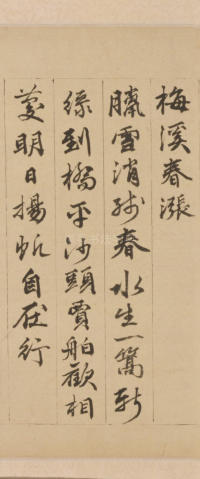 梅溪春漲
臘雪消殘春水生一篙新
綠到橋平沙頭賈舶歡相
慶明日揚帆自在行